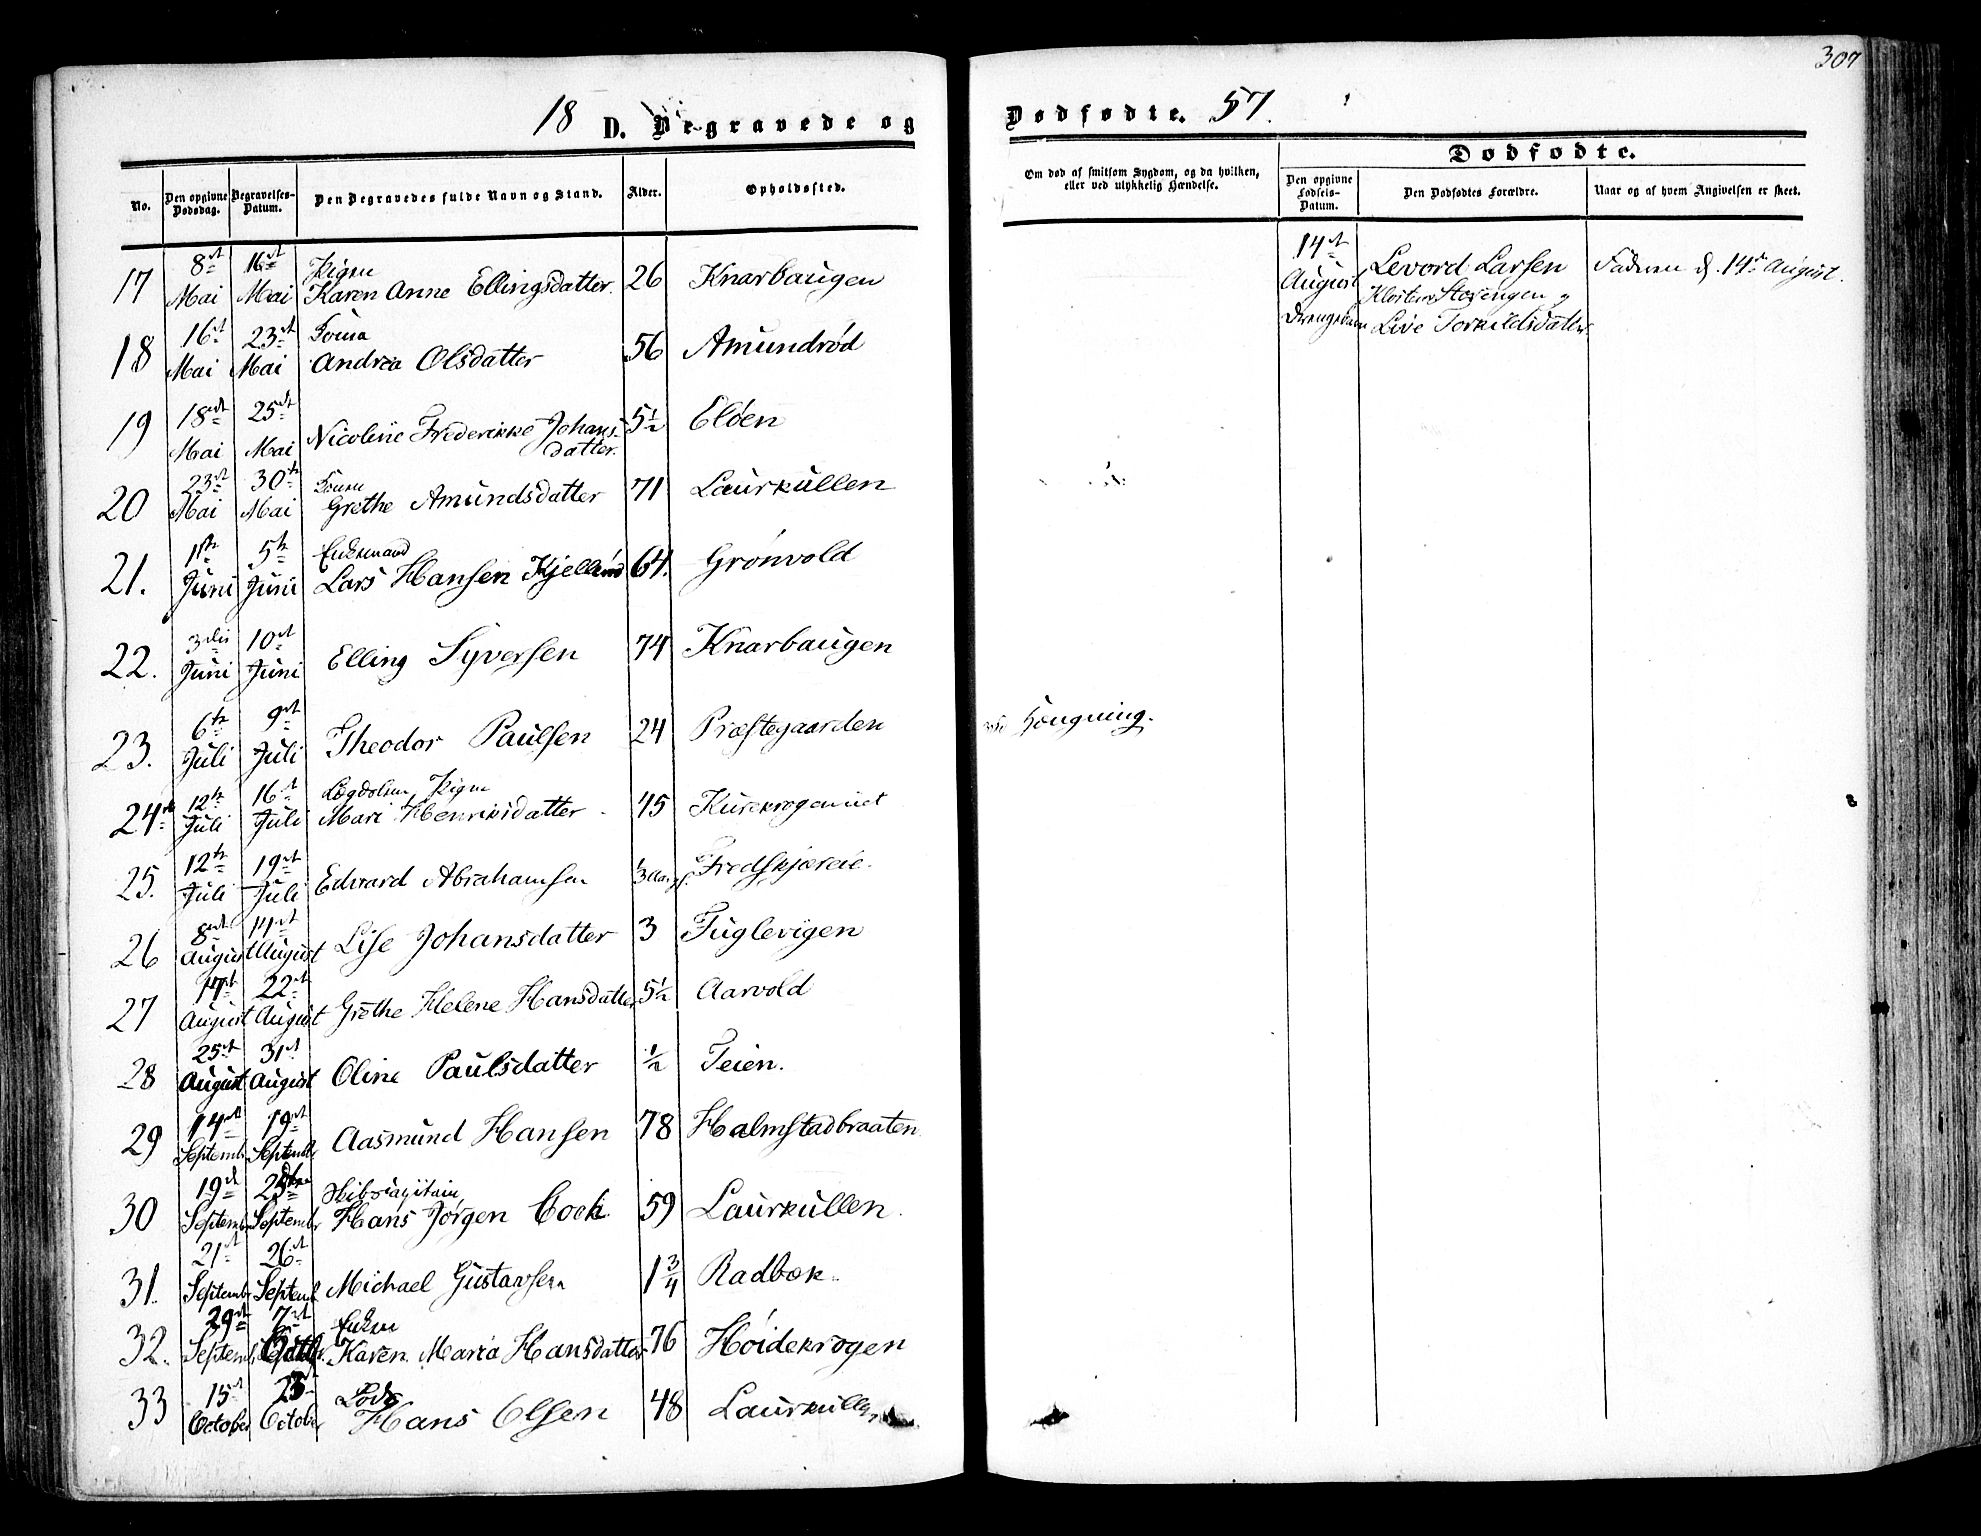 307
18 D. Begravede og Dødfødte. 57.
No.
Den opgivne Dødsdag.
Begravelses-Datum.
Den Begravedes fulde Navn og Stand.
Alder.
Opholdssted.
Om død af smitsom Sygdom, og da hvilken, eller ved ulykkelig Hændelse.
Dødfødte.
Den opgivne Fødsels-Datum.
Den Dødfødtes Forældre.
Naar og af hvem Angivelsen er skeet.
17 8de Mai 16de Mai Pigen Karen Anne Ellingsdatter 26 Knarbaugen
18 16de Mai 23de Mai Kone Andrea Olsdatter 56 Amundrød
19 18de Mai 25de Mai Nicoline Frederikke Johansdatter 5½ Eløen
20 23de Mai 30te Mai Konen Grethe Amundsdatter 71 Laurkullen
21. 1ste Juni 5te Juni Enkemand Lars Hansen Kjellerød 64. Grønvold
22. 3die Juni 10de Juni Elling Syversen 74 Knarbaugen
23. 6te Juli 9de Juli Theodor Paulsen 24 Præstegaarden ved Hængning.
24de 12te Juli 16de Juli Lægdslem, Pigen Mari Henriksdatter 45
25. 12te Juli 19de Juli Edvard Abrahamsen Fredskjæreie.
26 8de August 11de August Lise Johansdatter 3 Fuglevigen
27 17de August 22de August Grethe Helene Hansdatter 5½ Aarvold
28 25de August 31de August Oline Paulsdatter ½ Teien.
29 14de Septembr 19de Septembr Aasmund Hansen 78 Halmstadbraaten
30 19de Septembr Septembr Hans Jørgen Cock. 59 Laurkullen.
31. 21de Septembr 26de Septembr Michael Gustavsen 1¾ Radbæk.
32. 29de Septembr 7de Octbr. Enken Karen Maria Hansdatter 76 Høidekrogen
33 15de October 23de October Lods Hans Olsen 48 Laurkullen
14de August Drengebarn
Levord Larsen
Støtengen og
Live Torkildsdatter
Faderen d. 14de August.